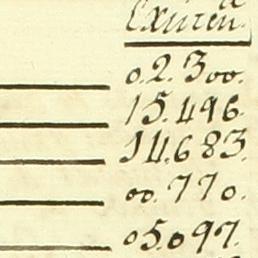 02.300.
15.496.
14.683.
00.770.
05.097.